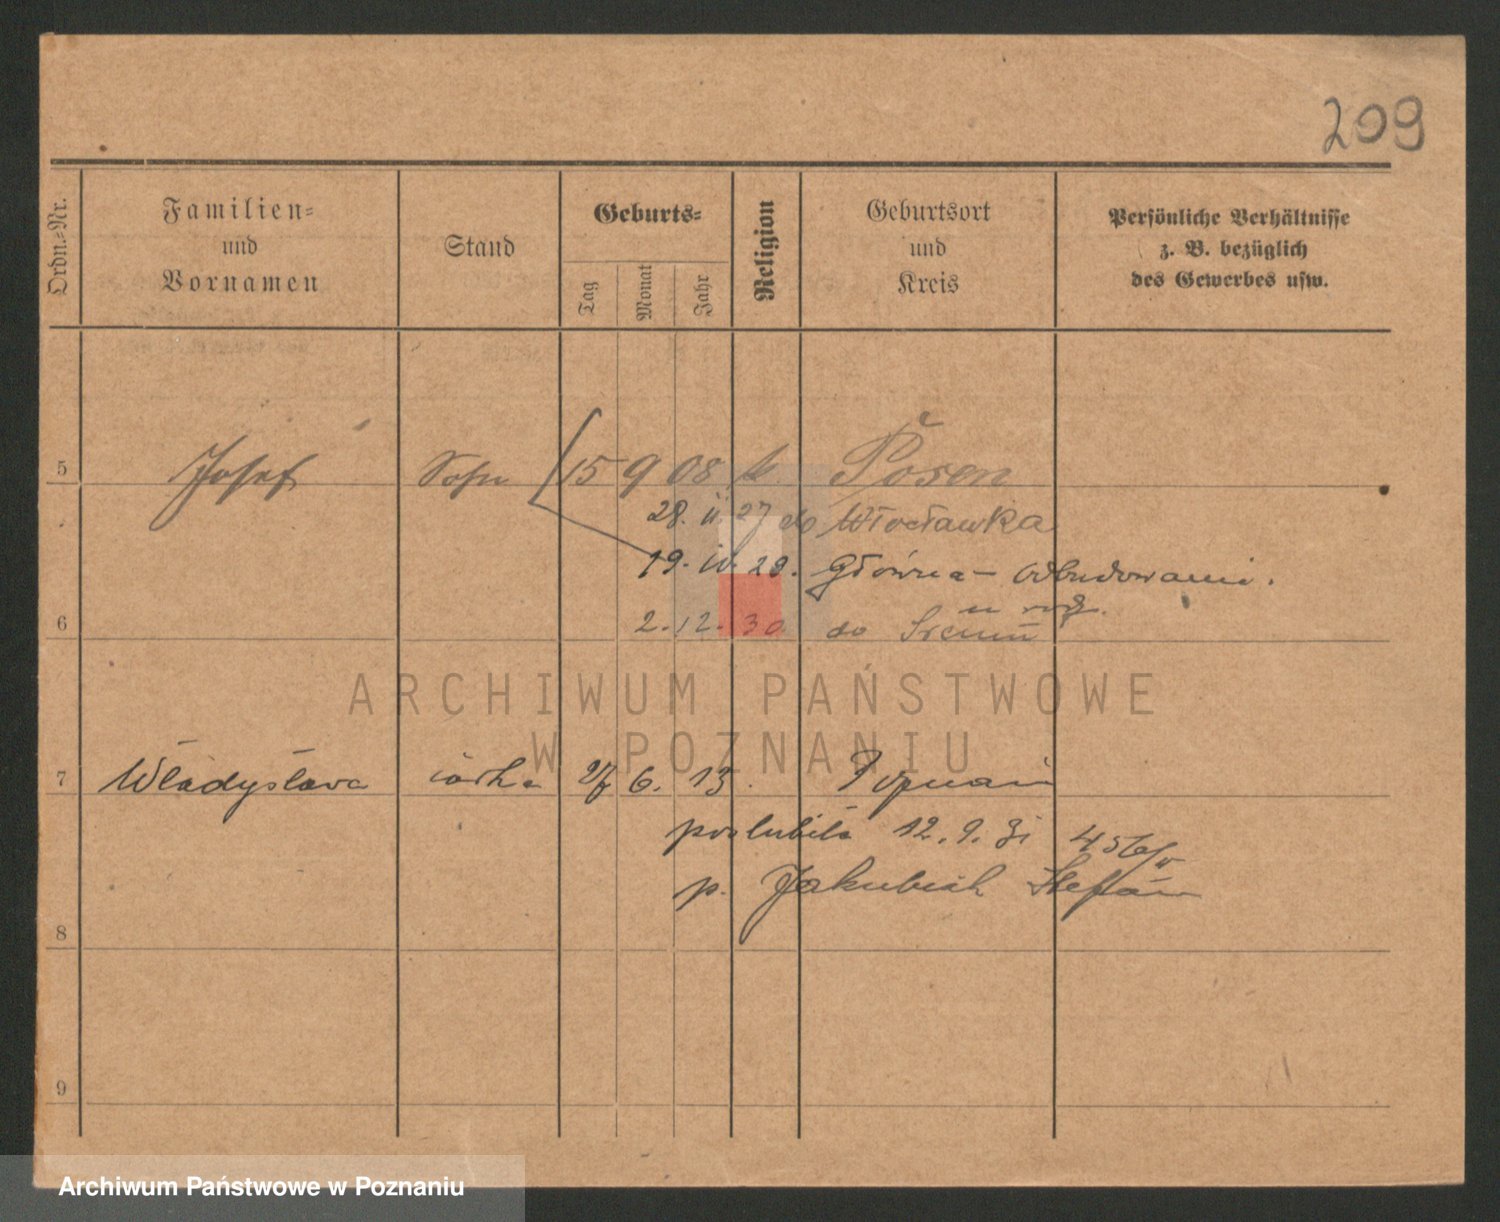 209
Ordn.=Nr.
Familien=
und
Vornamen
Stand
Geburts=
Tag
Monat
Jahr
Religion
Geburtsort
und
Kreis
Persönliche Verhältnisse
z. B. bezüglich
des Gewerbes usw.
5 Josef Sohn 15 9 08 k. Posen
28. II. 27 do Włocławka
19. IV. 29. Główna –
6
2. 12. 30 do Śremu
ARCHIWUM PAŃSTWOWE
W POZNANIU
7 Władysława córka 27 6. 13. Poznań
poslubiła 12. 9. 31
p. Jakubiak Stefan
8
9
Archiwum Państwowe w Poznaniu